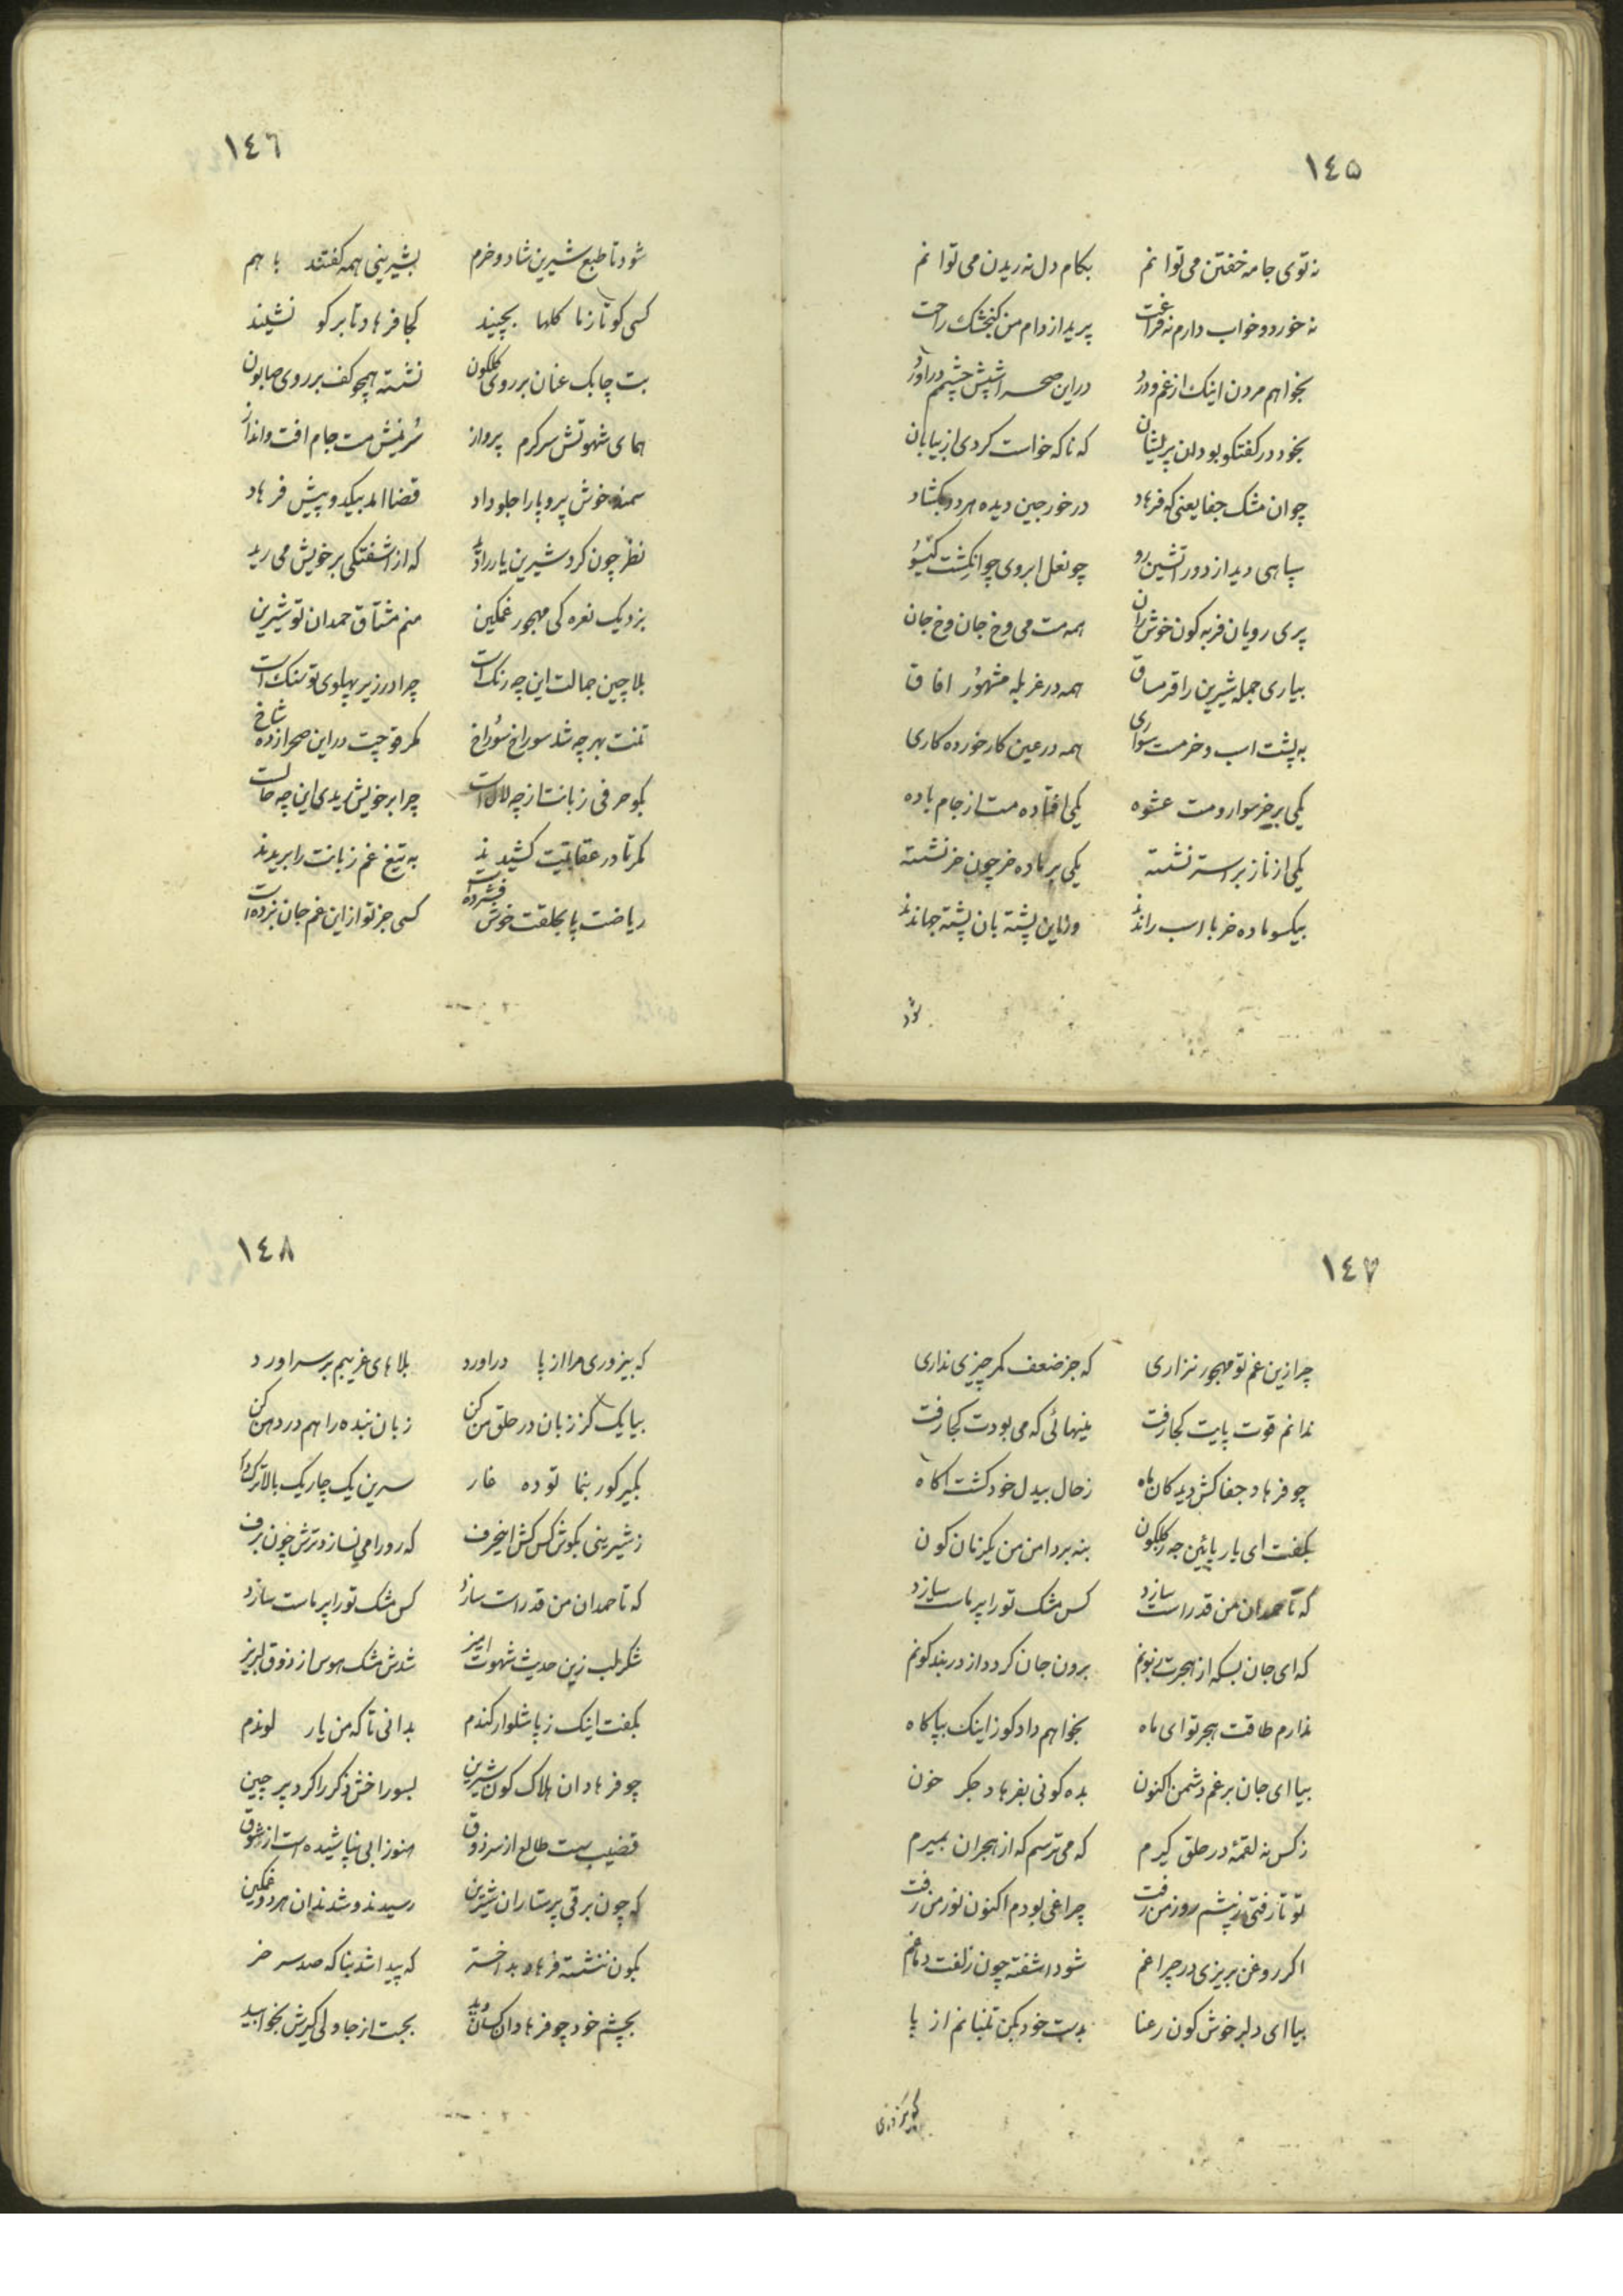 ١٤٥
نه توی جامه خفتن می توانم بکام دل نه ریدن می توانم
نه خورد و خواب دارم نه فراغت پرید از دام من کنجشک راحت
بخواهم مردن اینک از غم و درد در این صحرا شپش چشمم در آورد
بخود در کفتکو بود ان پریشان که ناکه خواست کردی از بیابان
چو ان مشک جفا یعنی که فرهاد در خورجین دیده هر دو بکشاد
سپاهی دید از دور اتشین رو چو نعل ابروی چو انکشت کیسو
پری رویان فربه کون خوش ران همه مست می وخ جان وخ جان
بیاری جمله شیرین را قرمساق همه در غربله مشهور افاق
به پشت اسب و خر مست سواری همه در عین کار خورده کاری
یکی بر خر سوار و مست عشوه یکی افتاده مست از جام باده
یکی از ناز بر استر نشسته یکی بر ماده خر چون خر نشسته
بیکسو ماده خر با اسب راندند وز این پشته بان پشته جهاندند
شود
١٤٦
شود تا طبع شیرین شاد و خرم بشیرینی همه کفتند با هم
کسی کو تا زنا کلها بچیند کجا فرهاد تا بر کو نشیند
بت چابک عنان بر روی کلکون نشسته همچو کف بر روی صابون
همای شهوتش سرکرم پرواز سرینش مست جام افت و انداز
سمند خوش پر و پا را جلو داد قضا امد بیکدو پیش فرهاد
نظر چون کرد شیرین یار را دید که از اشفتکی بر خویش می رید
بزد یک نعره کی مهجور غمکین منم مشتاق حمدان تو شیرین
بلا چین جمالت این چه رنک است چرا در زیر پهلوی تو سنک است
تنت بهر چه شد سوراخ سوراخ کمر قوچیت در این صحرا زده شاخ
بکو حرفی زبانت از چه لال است چرا بر خویش ریدی این چه حالت
کمر تا در عقابیت کشیدند به تیغ غم زبانت را بریدند
ریاضت پا بحلقت خوش فشرده است کسی جز تو از این غم جان نبرده است
١٤٧
چرا زین غم تو مهجور نزاری که جز ضعف کمر چیزی نداری
ندانم قوت پایت کجا رفت منیهائی که می بودت کجا رفت
چو فرهاد جفا کش دید کان ماه ز حال بیدل خود کشت اکاه
بکفت ای یار پائین جه ز کلکون بنه بر دامن من یکزمان کون
که تا حمدان من قد راست سازد کس مشک تو را پر ماست سازد
که ای جان بسکه از هجرت زبونم برون جان کردد از دربند کونم
ندارم طاقت هجر تو ای ماه بخواهم داد کوز اینک بپا کاه
بیا ای جان بر غم دشمن اکنون بده کونی بفرهاد جکر خون
ز کس نه لقمهٔ در حلق کیرم که می ترسم که از هجران بمیرم
تو تا رفتی ز پشتم روز من رفت چراغی بودم اکنون نور من رفت
اکر روغن بریزی در چراغم شود اشفته چون زلفت دماغم
بیا ای دلبر خوش کون رعنا بدست خود بکن تنبانم از پا
که بیزوری
١٤٨
که بیزوری مرا از پا در اورد بلاهای غریبم بر سر اورد
بیا یک کز زبان در حلق من کن زبان بنده را هم در دهن کن
بکیر کور بنما توده غار سرین یک چاریک بالاترک دار
ز شیرینی بکوش کس کش اینحرف که رو را می نسازد ترش چون برف
که تا حمدان من قد راست سازد کس مشک تو را پر ماست سازد
شکر لب زین حدیث شهوت امیز شدش مشک هوس از ذوق لبریز
بکفت اینک ز پا شلوار کندم بدانی تا که من یار لوندم
چو فرهاد ان هلاک کون شیرین بسوراخش ذکر را کرد پر چین
قضیب ست طالع از سر ذوق هنوز ابی نپاشیده است از شوق
که چون برقی پرستاران شیرین رسیدند و شدند ان هر دو غمکین
بکون ننشسته فرهاد بد اختر که پیدا شد بناکه صد سر خر
بچشم خود چو فرهاد ان کسان دید بجست از جا ولی کیرش بخوابید